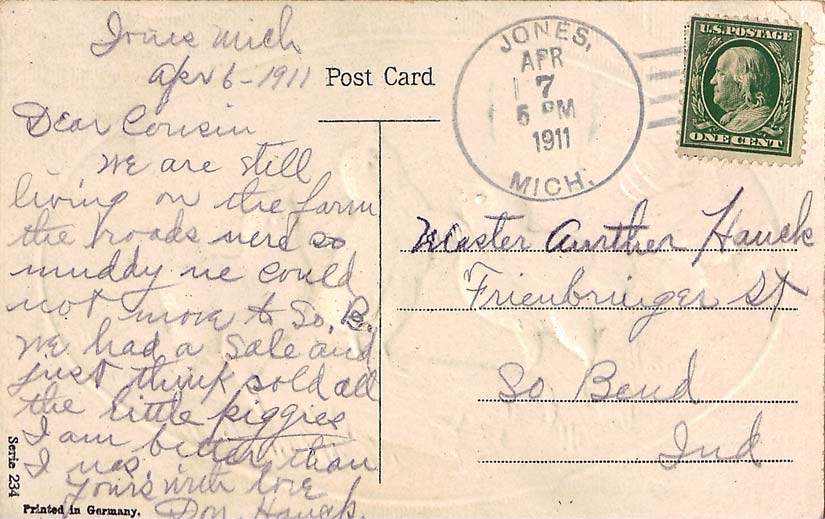 Jones Mich
Apr 6-1911
Post Card
JONES,
APR
7
5 PM
1911
MICH.
U.S. POSTAGE
ONE CENT
Dear Cousin
We are still
living on the farm
the roads were so
muddy we could
not move to So. B.
We had a sale and
just think sold all
the little piggies
I am better than
I was.
Yours with love
Don Hauck.
Master Aurther Hauck
Frienbringer St
So Bend
Ind
Serie 234
Printed in Germany.